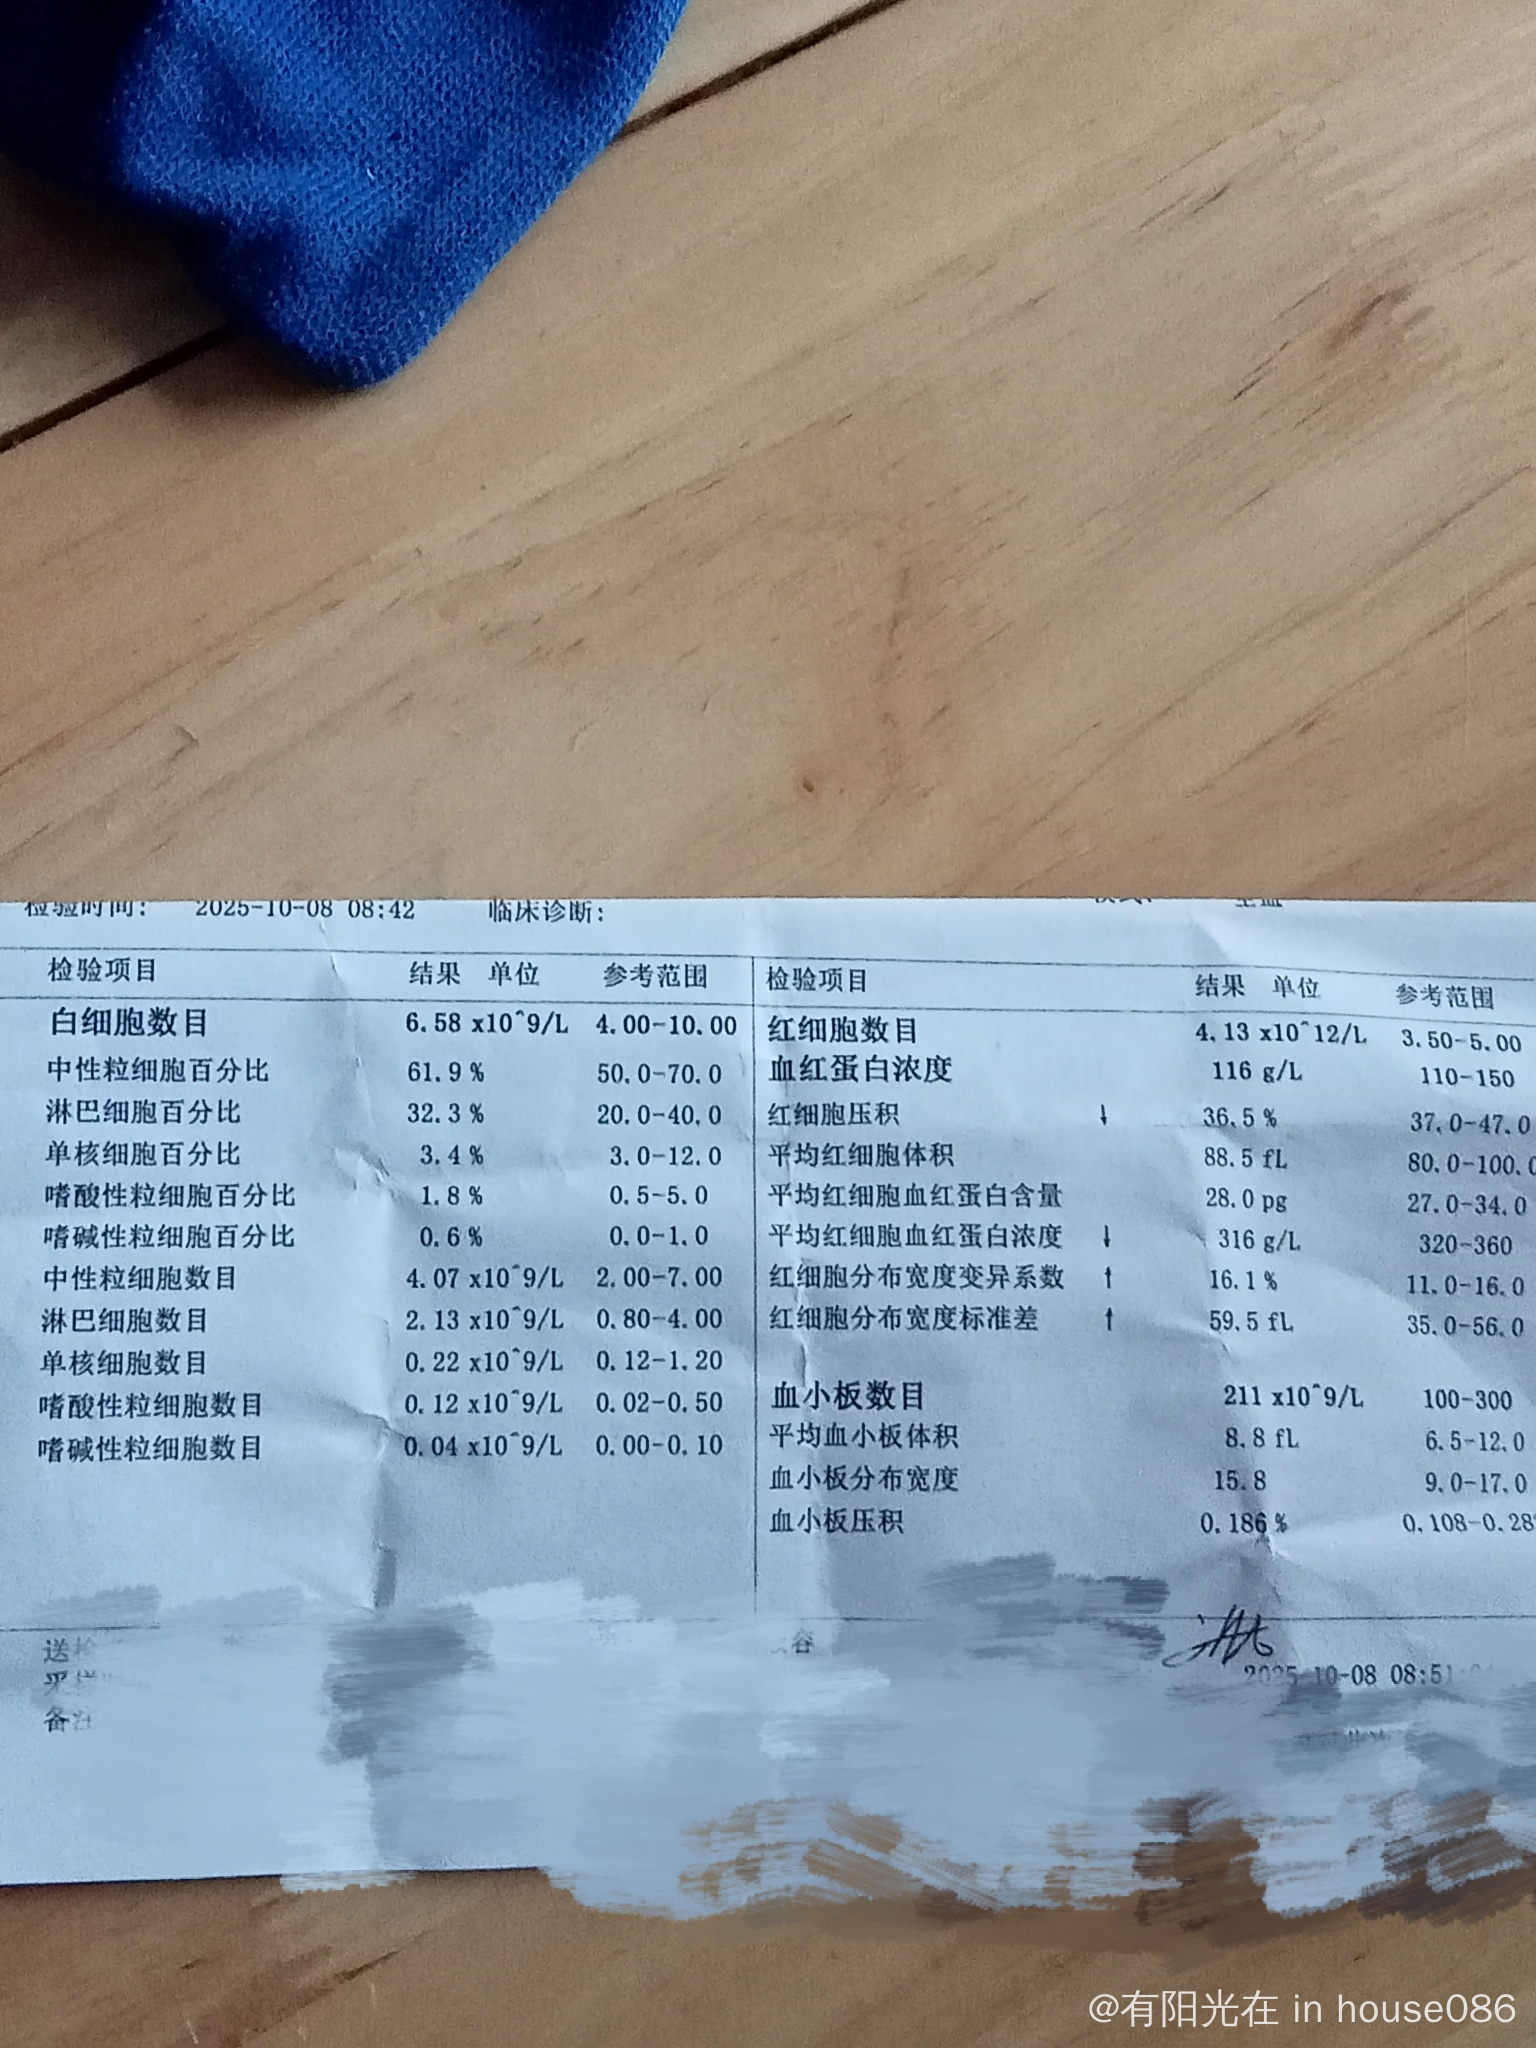 检验时间: 2025-10-08 08:42 临床诊断:
检验项目 结果 单位 参考范围
白细胞数目 6.58 x10^9/L 4.00-10.00
中性粒细胞百分比 61.9 % 50.0-70.0
淋巴细胞百分比 32.3 % 20.0-40.0
单核细胞百分比 3.4 % 3.0-12.0
嗜酸性粒细胞百分比 1.8 % 0.5-5.0
嗜碱性粒细胞百分比 0.6 % 0.0-1.0
中性粒细胞数目 4.07 x10^9/L 2.00-7.00
淋巴细胞数目 2.13 x10^9/L 0.80-4.00
单核细胞数目 0.22 x10^9/L 0.12-1.20
嗜酸性粒细胞数目 0.12 x10^9/L 0.02-0.50
嗜碱性粒细胞数目 0.04 x10^9/L 0.00-0.10
检验项目 结果 单位 参考范围
红细胞数目 4.13 x10^12/L 3.50-5.00
血红蛋白浓度 116 g/L 110-150
红细胞压积 ↓ 36.5 % 37.0-47.0
平均红细胞体积 88.5 fL 80.0-100.0
平均红细胞血红蛋白含量 28.0 pg 27.0-34.0
平均红细胞血红蛋白浓度 ↓ 316 g/L 320-360
红细胞分布宽度变异系数 ↑ 16.1 % 11.0-16.0
红细胞分布宽度标准差 ↑ 59.5 fL 35.0-56.0
血小板数目 211 x10^9/L 100-300
平均血小板体积 8.8 fL 6.5-12.0
血小板分布宽度 15.8 9.0-17.0
血小板压积 0.186 % 0.108-0.28
送检
采样
备注
容
2025-10-08 08:51
@有阳光在 in house086